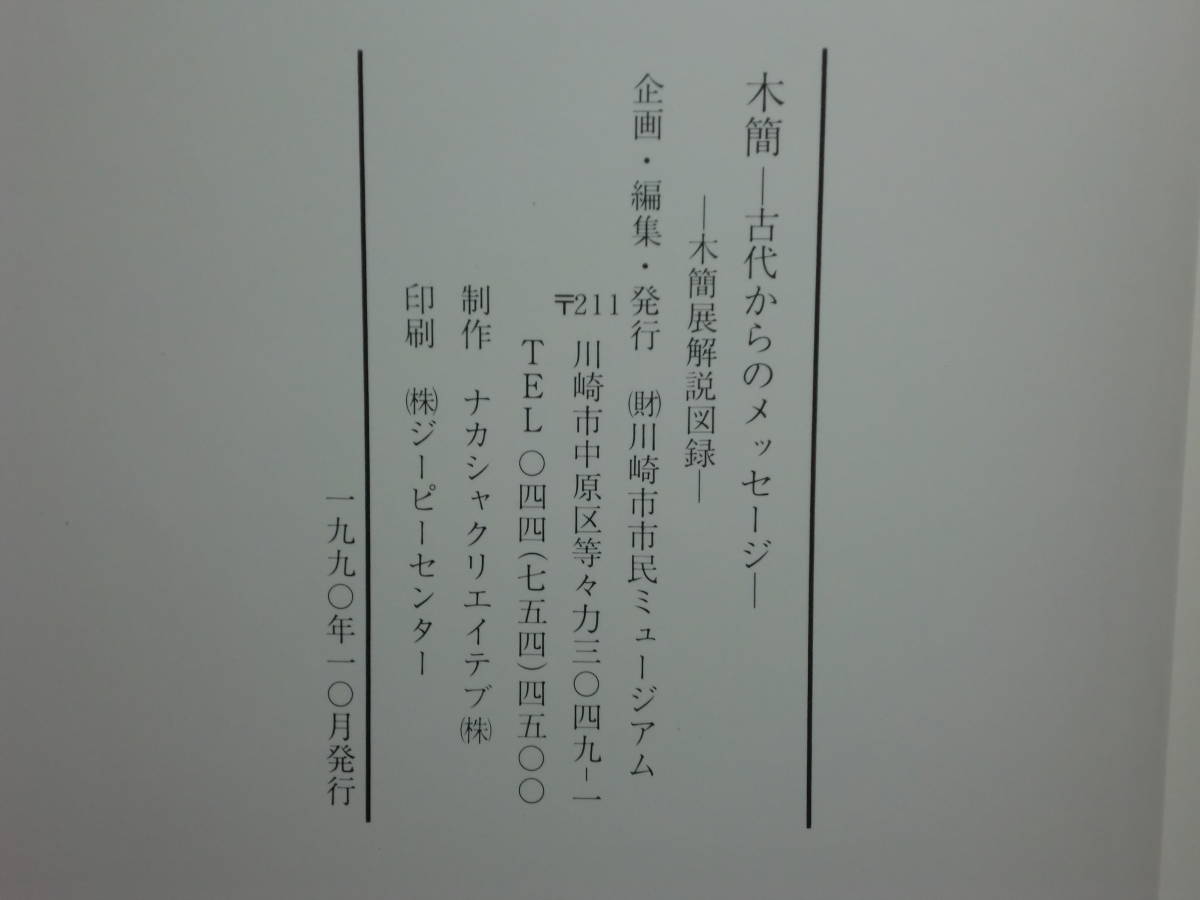 木簡―古代からのメッセージ―
―木簡展解説図録―
企画・編集・発行　㈶川崎市市民ミュージアム
〒211　川崎市中原区等々力三〇四九-一
TEL〇四四(七五四)四五〇〇
制作　ナカシャクリエイテブ㈱
印刷　㈱ジーピーセンター
一九九〇年一〇月発行